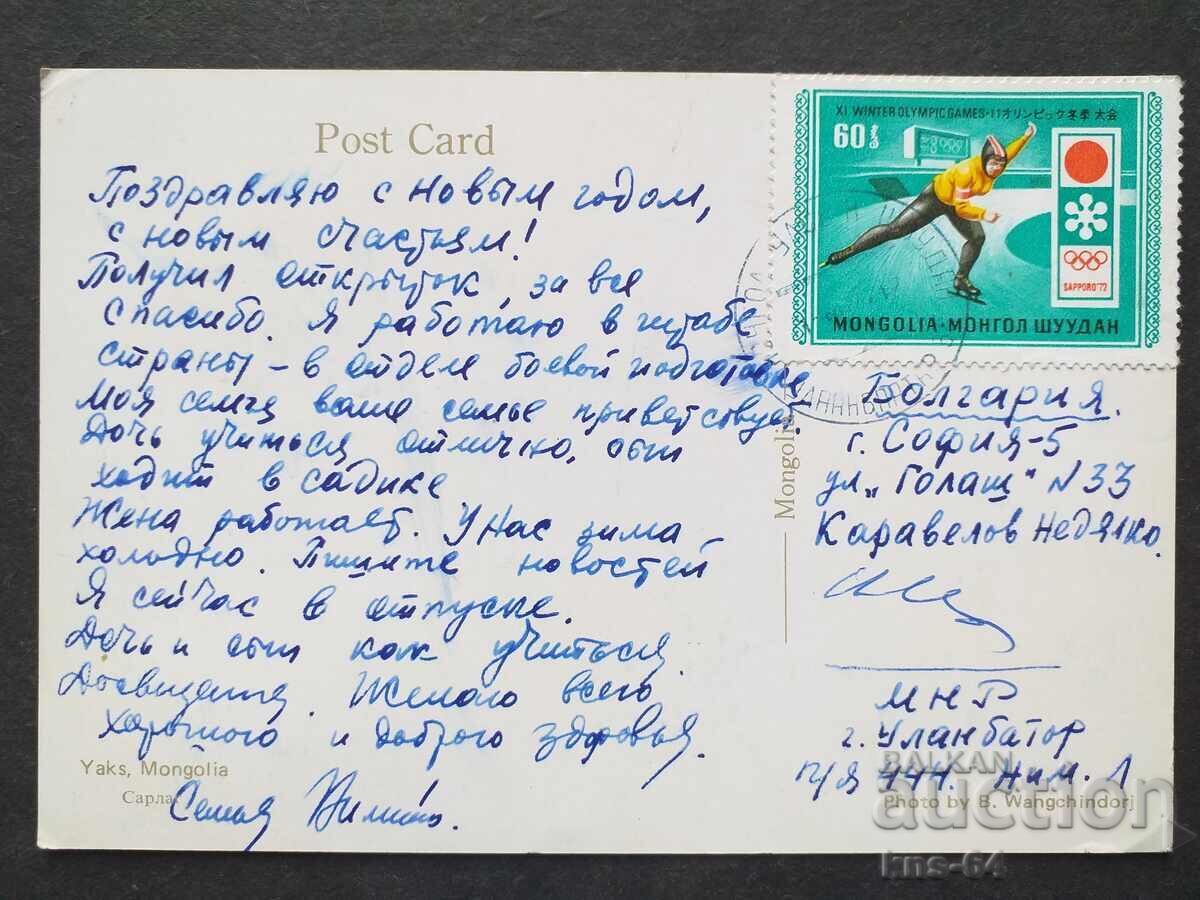 Post Card
Поздравляю с новым годом,
с новым счастьем!
Получил открыток, за все
спасибо. Я работаю в штабе
страны - в отделе боевой подготовке
Моя семья ваше семье приветствует.
Дочь учиться отлично, сын
ходит в садике
Жена работает. У нас зима
холодно. Пишите новостей
Я сейчас в отпуске.
Дочь и сын как учиться.
Досвидания. Желаю всего
хорошого и доброго здоровья.
Семья
Yaks, Mongolia
Сарлаг
Mongolia
XI WINTER OLYMPIC GAMES-11オリンピック冬季大会
60
SAPPORO'72
MONGOLIA·МОНГОЛ ШУУДАН
Болгария.
г. София-5
ул. „Голаш" N 33
Каравелов Недялко.
МНР
г. Уланбатор
п/я 444. Ним. Л
Photo by B. Wangchindorj
BALKAN
auction
kns-64